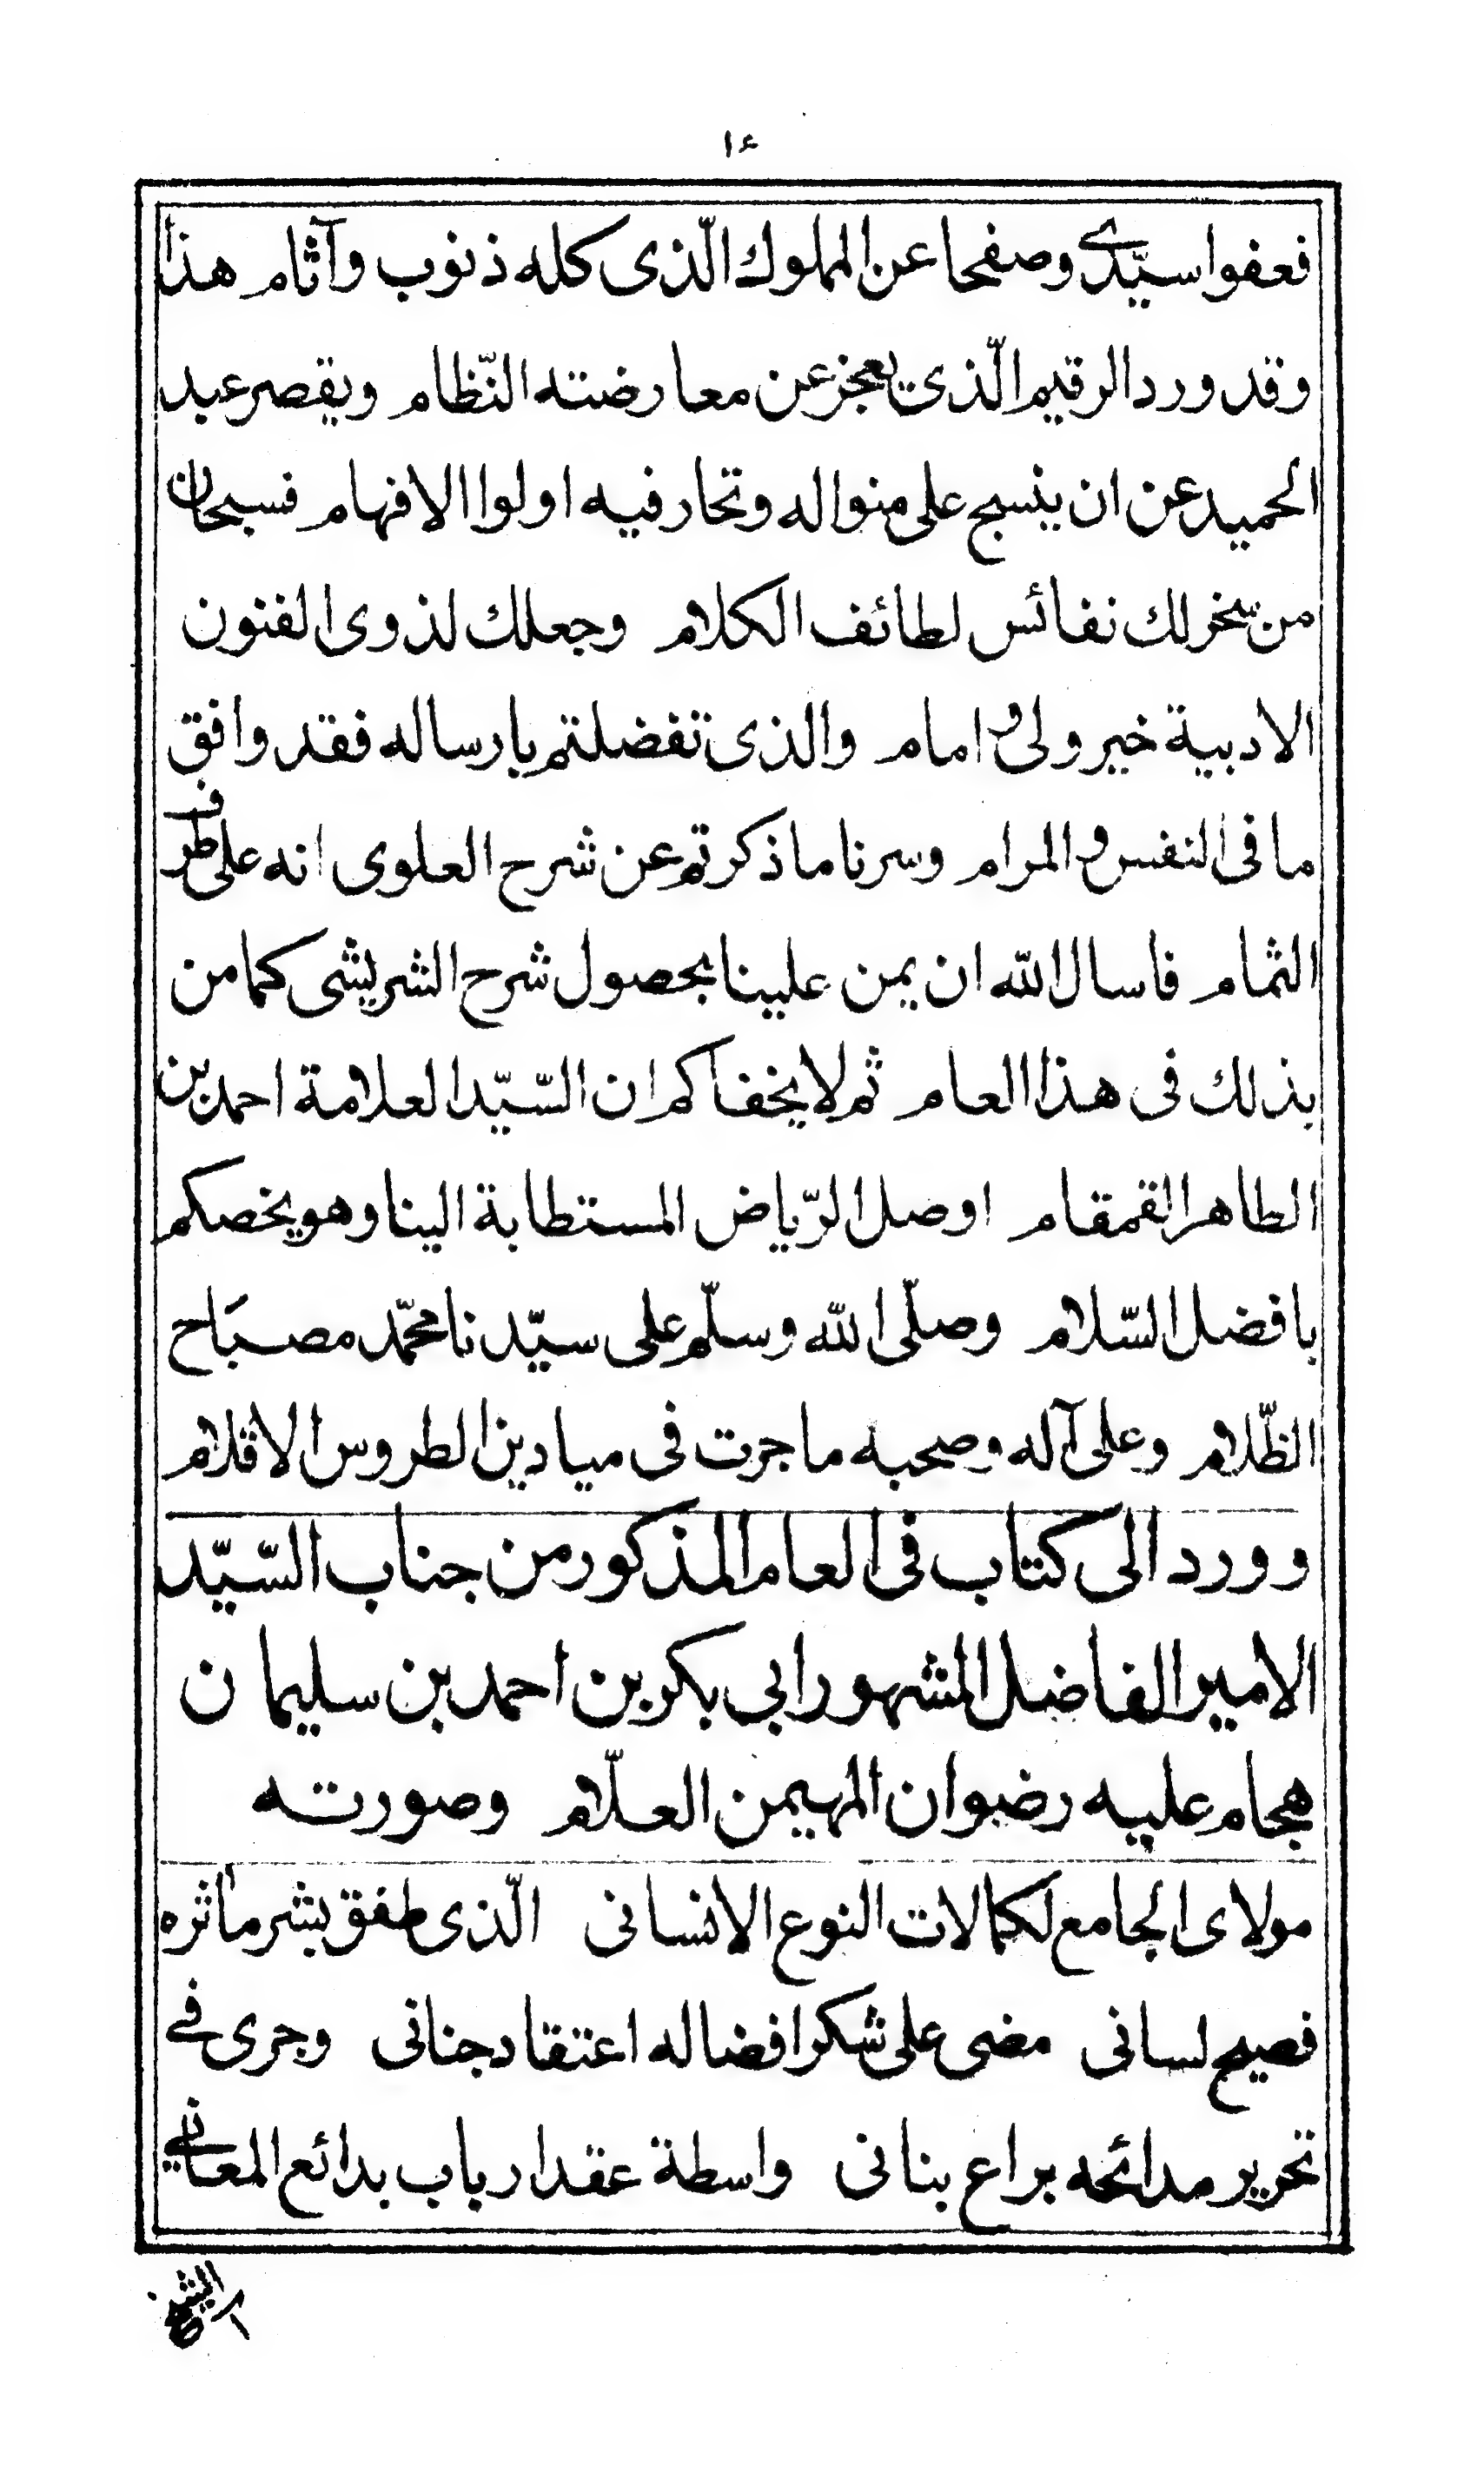 ١٤
فعفوا سيّدى وصفحا عن المملوك الّذى كله ذنوب وآثام هذا
وقد ورد الرقيم الّذى يعجز عن معارضته النّظام ويقصر عبد
الحميد عن ان ينسج على منواله وتحار فيه اولوا الافهام فسبحان
من سخر لك نفائس لطائف الكلام وجعلك لذوى الفنون
الادبية خير ولى وامام والذى تفضلتم بارساله فقد وافق
ما فى النفس والمرام وسرنا ما ذكرتم عن شرح العلوى انه على طرف
الثمام فاسال الله ان يمن علينا بحصول شرح الشريشى كما من
بذلك فى هذا العام ثم لا يخفاكم ان السّيّد العلامة احمد بن
الطاهر القمقام اوصل الرّياض المستطابة الينا وهو يخصكم
بافضل السّلام وصلّى الله وسلّم على سيّدنا محمّد مصبَاح
الظّلام وعلى آله وصحبه ما جرت فى ميادين الطروس الاقلام
وورد الى كتاب فى العام المذكور من جناب السّيّد
الامير الفاضل المشهور ابى بكر بن احمد بن سليمان
هجام عليه رضوان المهيمن العلّام وصورته
مولاى الجامع لكمالات النوع الانسانى الّذى طفق بنشر مآثره
فصيح لسانى مضى على شكر افضاله اعتقاد جنانى وجرى فى
تحرير مدائحه يراع بنانى واسطة عقد ارباب بدائع المعانى
الشيخ